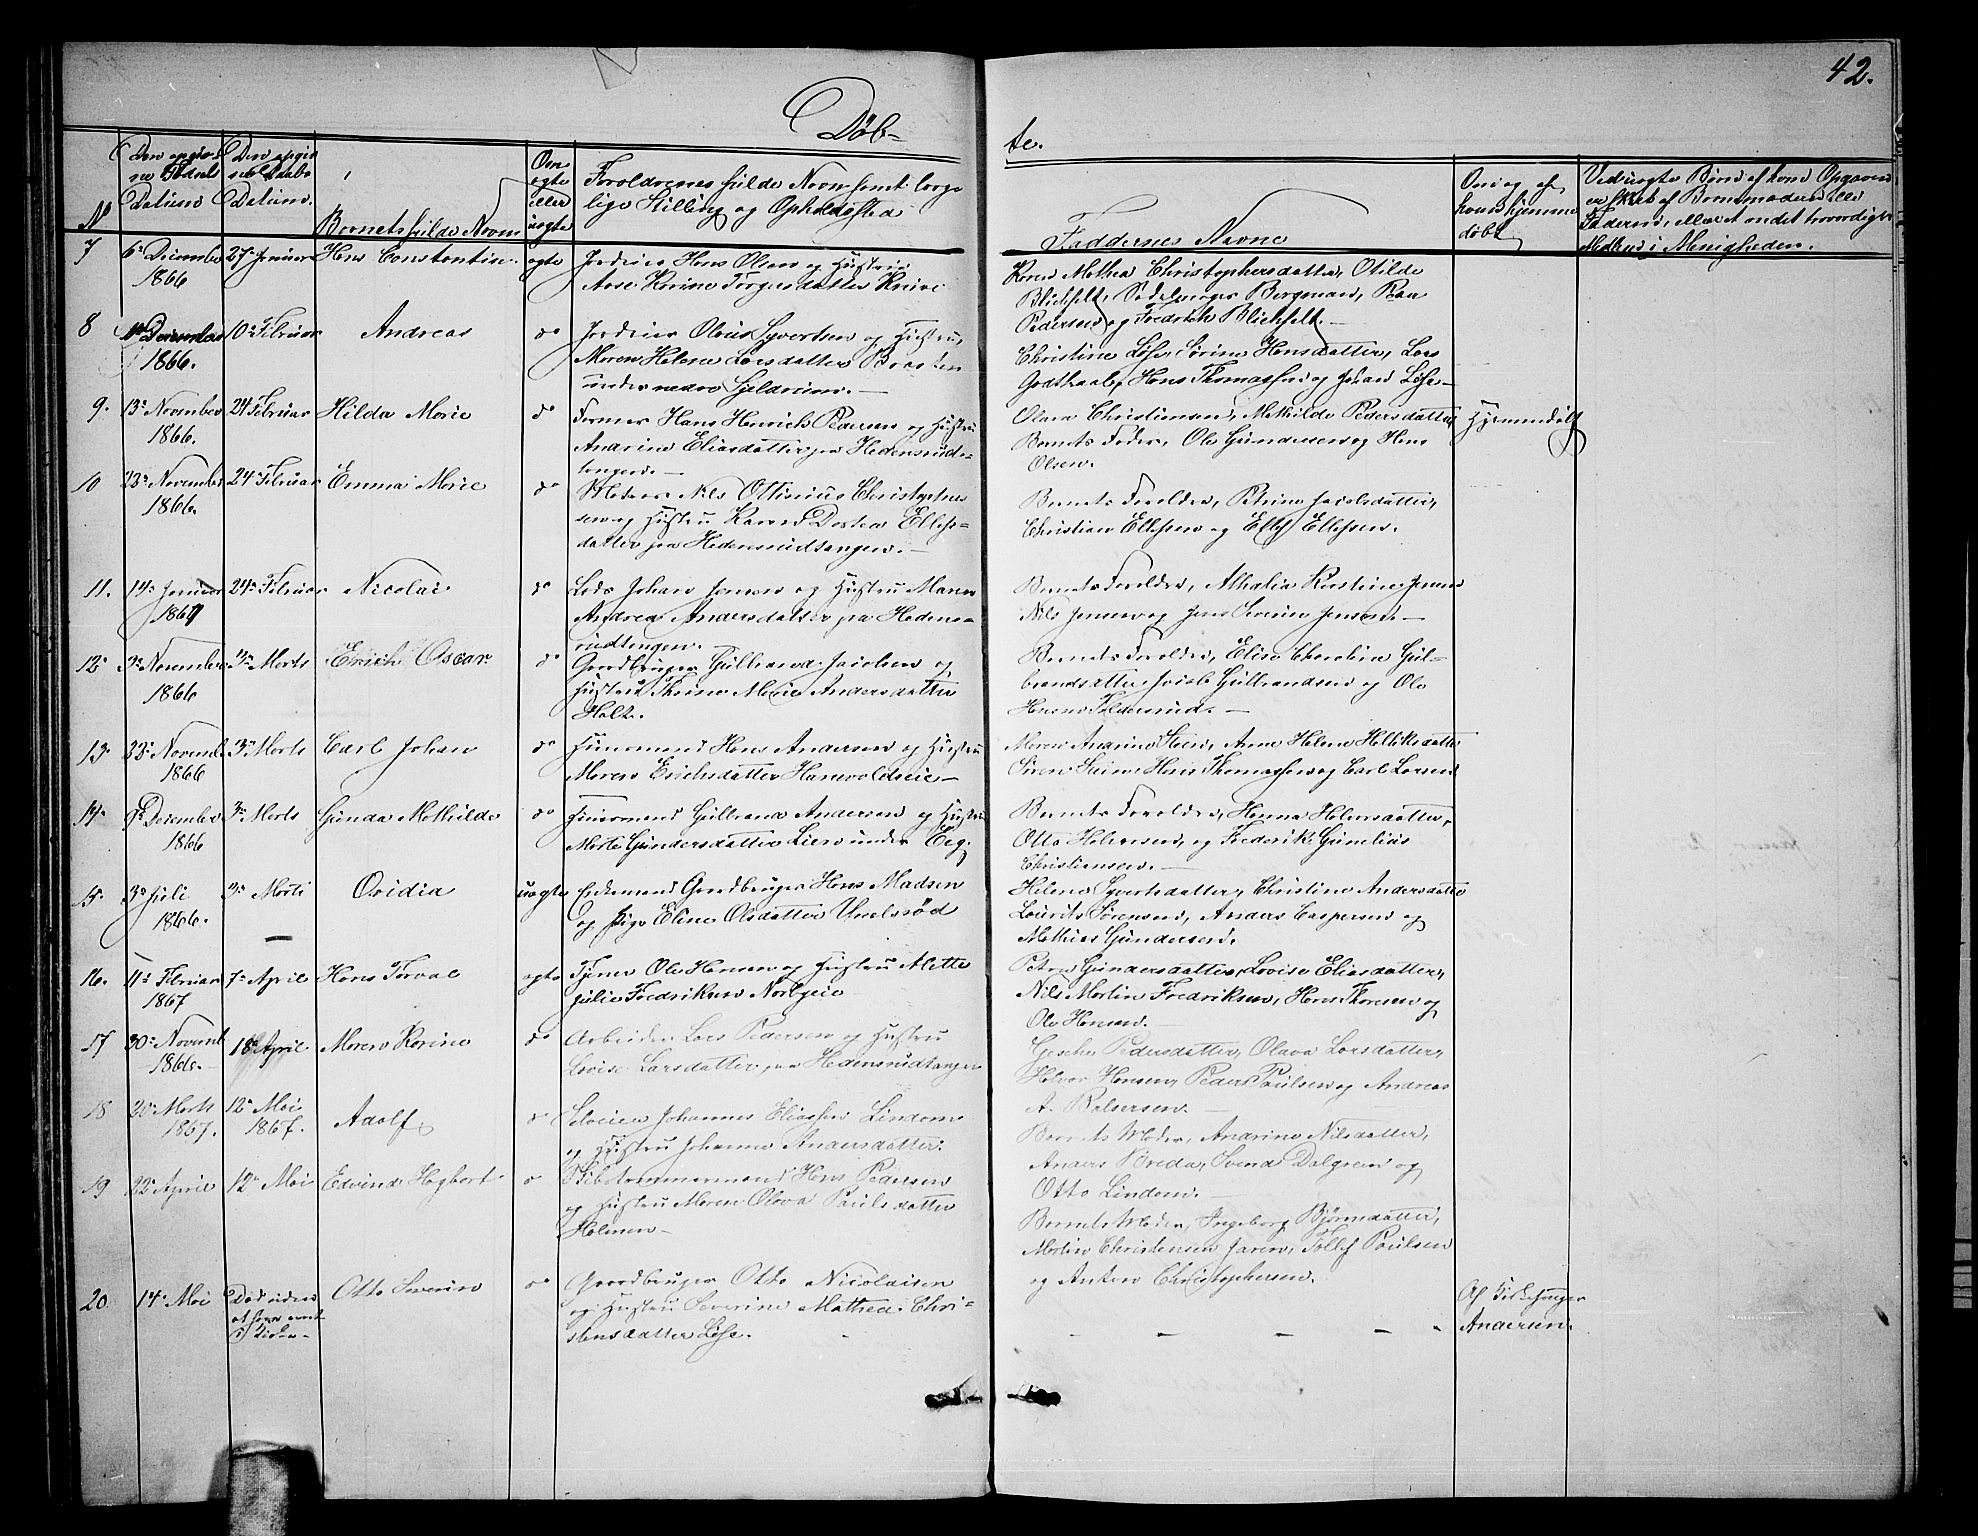 42.
Døb-
te.
No
Den opgiv-
ne Fødsels
Datum
Den opgiv
ne Daabs
Datum.
Barnets fulde Navn
Om
ægte
eller
uægte
Forældrenes fulde Navn samt borge
lige Stilling og Opholdssted
Faddernes Navne
Om og af
hvem hjemme
døbt
Ved uægte Børn af hvem Opgaven
er skeet af Barnemoderen eller
Faderen, eller et andet troværdigt
Medlem i Menigheden.
7 6te Decembr 27de Januar Hans Constantin. ægte Jordeier Hans Olsen og Hustru
1866 Aase Karine Torgersdatter Knive
Karen Mathea Christophersdatter, Otilde
Blichfelt, Sadelmager Bergman,
Pedersen og Fredrich Blichfelt.-
8 December 10de Februar Andreas do Jordeier Olaus Syvertsen og Hustru,
1866. Maren Helene Larsdatter Braaten
under nedre Hjelderum.-
Christine Løse, Sørine Hansdatter, Lars
Godthaab, Hans Thomassen og Johan Løse-
9. 13de November 24 Februar Hilda Marie do Former Hans Henrich Pedersen og Hustru
1866. Andrine Eliasdatter paa Hedensruds-
tangen.-
Olava Christiansen, Mathilde Pedersdatter Hjemmedøbt
Barnets Fader, Ole Gundersen og Hans
Olsen.
10 23de November 24de Februar Emma Marie do Matros Nils Ottinius Christophes
1866. sen og Hustru Karen Dorthea Ellefs-
datter paa Hedensrudtangen.-
Barnets Forældre, Petrine Jacobsdatter,
Christian Ellefsen og Ellef Ellefsen.
11. 14de Januar 24de Februar Nicolai do Lods Johan Jensen og Hustru Maren
1867 Andrea Andersdatter paa Hedens-
rudtangen.
Barnets Forældre, Athalia Kirstine Jensen
Nils Jensen og Jens Severin Jensen.-
12. 3de November 3de Marts Erich Oscar. do Gaardbruger Gulbrand Jacobsen og
1866 Hustru Thrine Marie Andersdatter
Holt.
Barnets Forældre, Elise Charoline Gul-
brandsdatter Jacob Gulbrandsen og Ole
Hansen Foldersrud.-
13. 23de Novemb 3de Marts Carl Johan do Huusmand Hans Andersen og Hustru
1866 Maren Erichsdatter Harevoldseie-
Maren Andrine Stein, Anne Helene Helliksdatter
Søren Stein, Hans Thomassen og Carl Larsen
14. December 3de Marts Gunda Mathilde do Huusmand Gulbrand Andersen og Hustru
1866 Marte Gundersdatter Lien under Eeg.
Barnets Forældre, Hanna Halvorsdatter,
Otto Halvorsen, og Frederik Gunelius
Christiansen.-
15. 3de Juli 3de Marts Ovidia uægte Enkemand Gaardbruger Hans Madsen
1866. og Pige Eline Olsdatter Unelsrød
Helene Syvertsdatter, Christine Andersdatter
Laurits Sørensen, Anders Caspersen og
Mathias Gundersen.
16. 11te Februar 7de April Hans Torval ægte Tjener Ole Hansen og Hustru Mette
1867 Julie Fredriksen Norbyeie
Petra Gundersdatter, Lovise Eliasdatter,
Nils Martin Fredriksen, Hans Thoresen og
Ole Hansen.-
17 30te Novemb 18de April Maren Karine do Arbeider Lars Pedersen og Hustru
1866.- Lovise Larsdatter paa Hedensrudtangen
Gesche Pedersdatter, Olava Larsdatter,
Halvor Hansen, Peder Paulsen og Andreas
A. Balsersen.-
18 20de Marts 12te Mai Adolf do Selveier Johannes Eliassen Lindom
1867. 1867. og Hustru Johanne Andersdatter.
Barnets Moder, Andrine Nilsdatter,
Anders Breda, Svend Dalgren og
Otto Lindom.-
19 22de April 12te Mai Edvind Hagbart do Hans Pedersen
og Hustru Maren Olava Paulsdatter
Holmen-
Barnets Moder, Ingeborg Bjørnsdatter,
Martin Christensen Jaren, Tollef Paulsen
og Anton Christophersen.
20. 14de Mai Død uden
at være
i Kirke- Otto Severin do Gaardbruger Otto Nicolaisen
og Hustru Severine Mathea Chri-
stensdatter Løse.
- - - - -
Af Kirkesanger
Andersen.